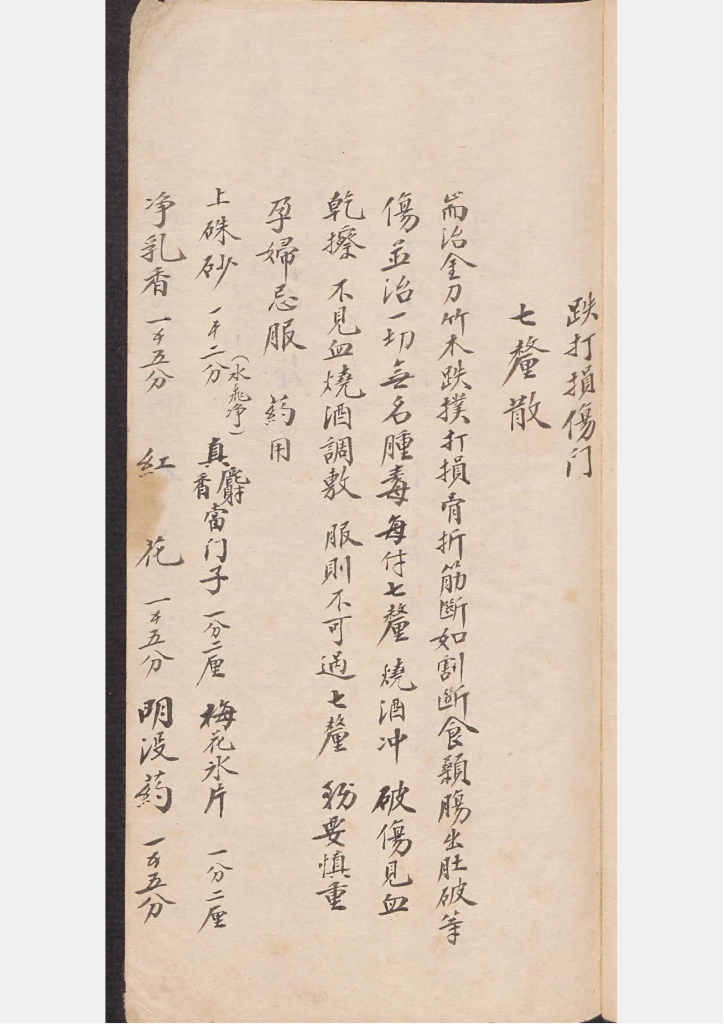 跌打損傷门
七釐散
耑治金刀竹木跌撲打損骨折筋斷如割斷食顙腸出肚破等
傷並治一切無名腫毒每付七釐 燒酒冲 破傷見血
乾擦 不見血燒酒調敷 服則不可過七釐 務要慎重
孕婦忌服 葯用
上硃砂 一㐅二分(水飛净) 真麝香當门子 一分二厘 梅花氷片 一分二厘
净乳香 一㐅五分 紅花 一㐅五分 明没葯 一㐅五分